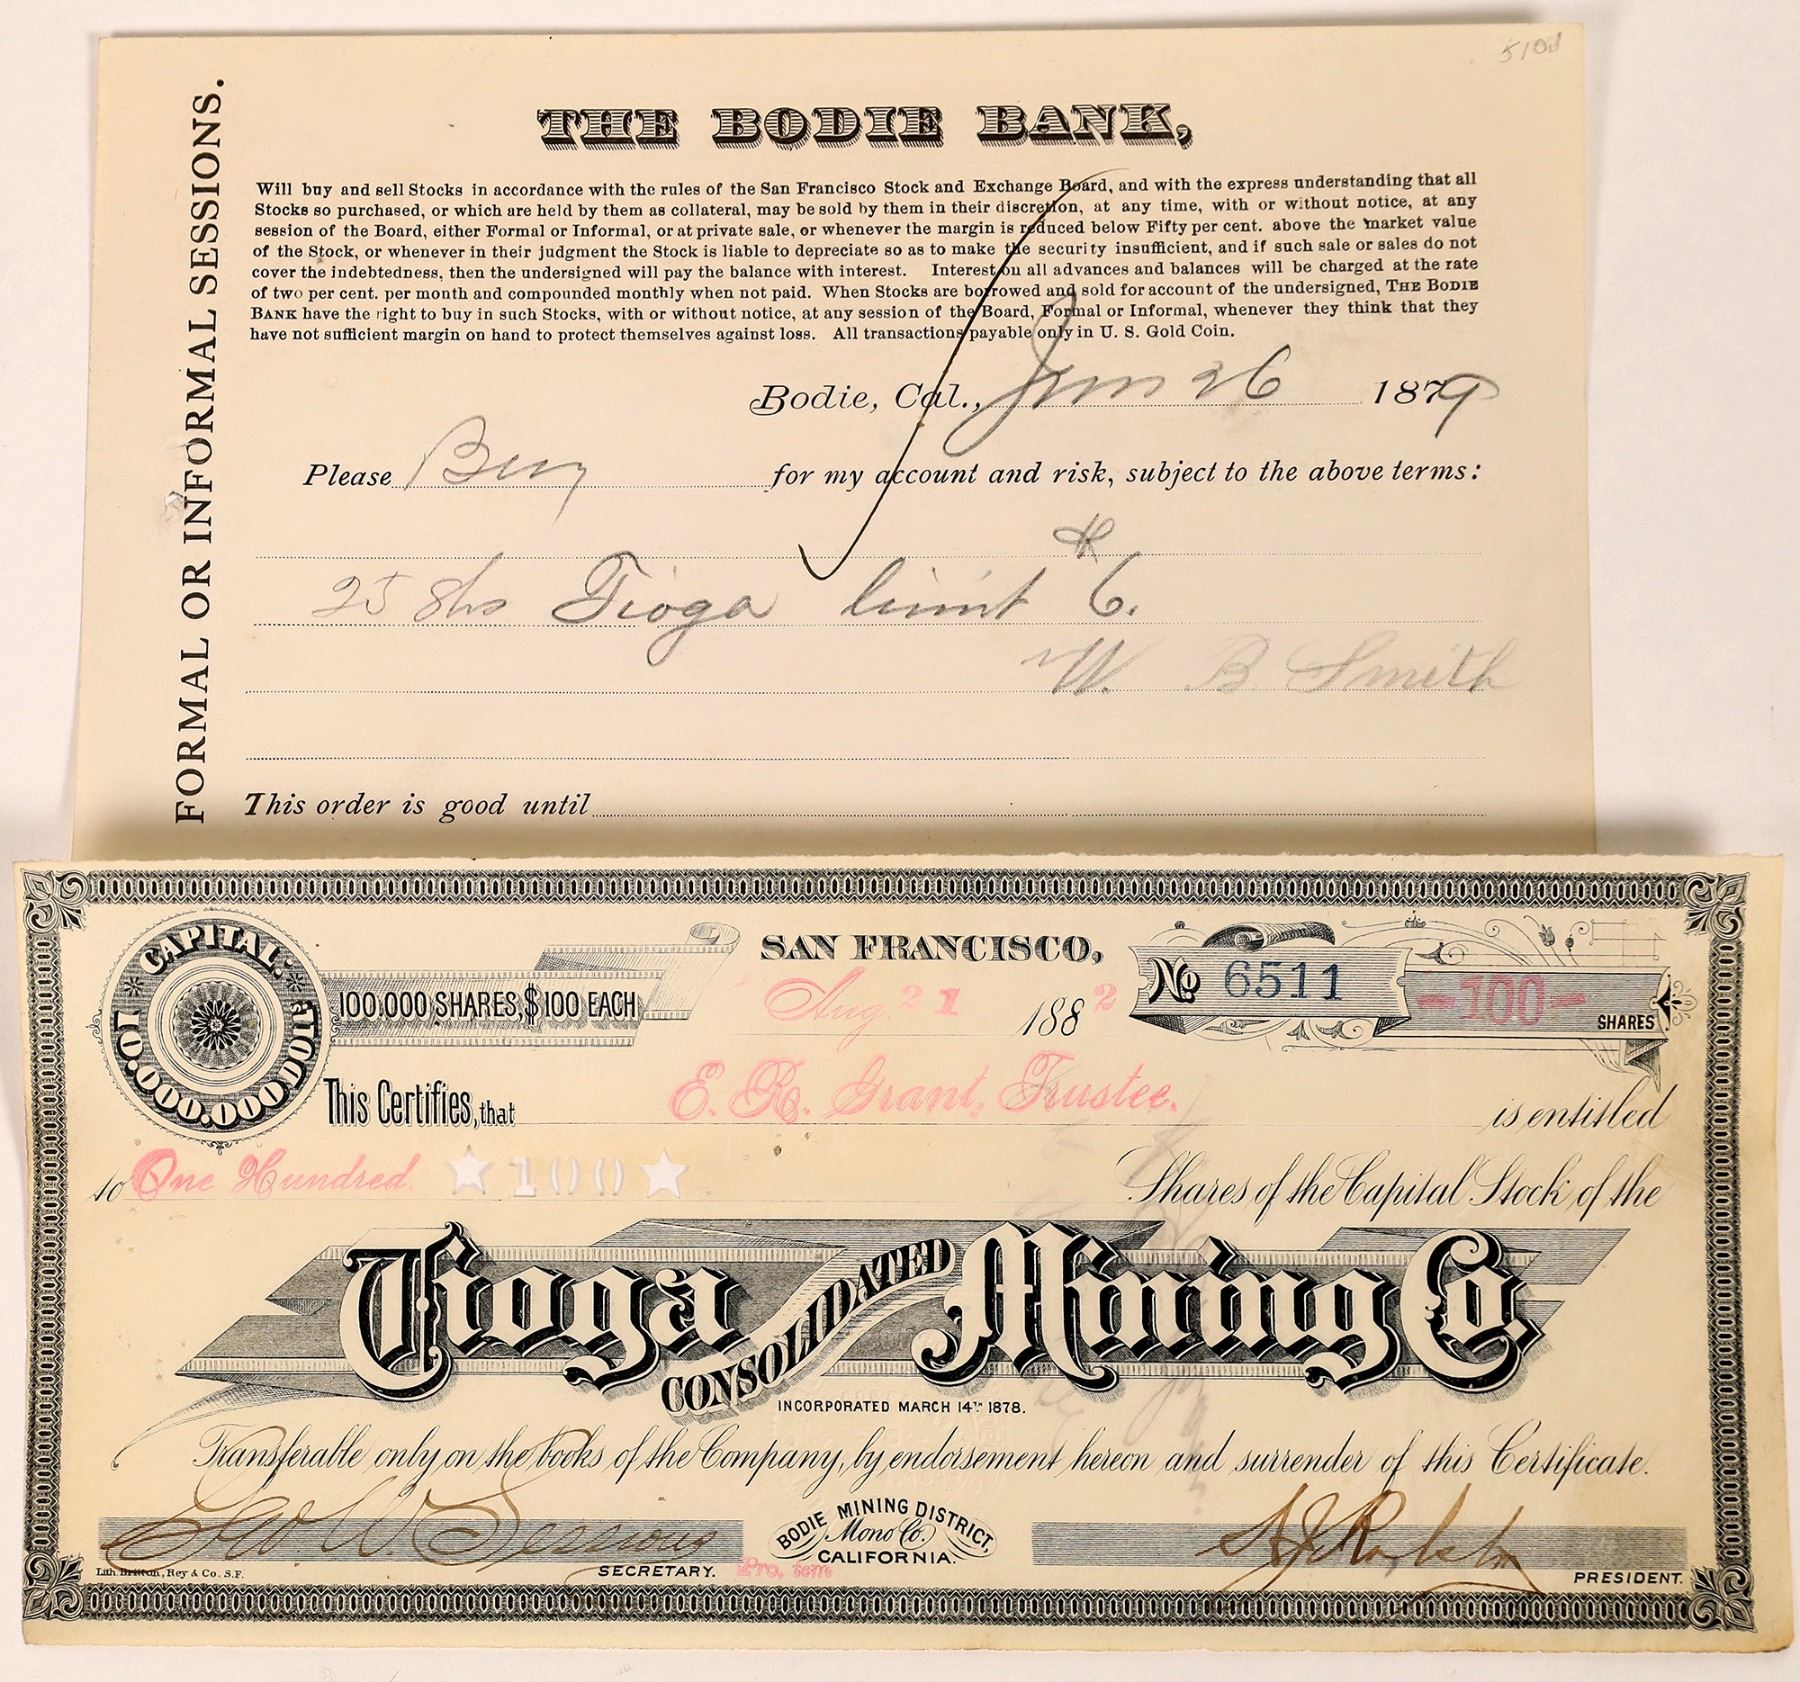 5100
FORMAL OR INFORMAL SESSIONS.
THE BODIE BANK,
Will buy and sell Stocks in accordance with the rules of the San Francisco Stock and Exchange Board, and with the express understanding that all
Stocks so purchased, or which are held by them as collateral, may be sold by them in their discretion, at any time, with or without notice, at any
session of the Board, either Formal or Informal, or at private sale, or whenever the margin is reduced below Fifty per cent. above the market value
of the Stock, or whenever in their judgment the Stock is liable to depreciate so as to make the security insufficient, and if such sale or sales do not
cover the indebtedness, then the undersigned will pay the balance with interest. Interest on all advances and balances will be charged at the rate
of two per cent. per month and compounded monthly when not paid. When Stocks are borrowed and sold for account of the undersigned, THE BODIE
BANK have the right to buy in such Stocks, with or without notice, at any session of the Board, Formal or Informal, whenever they think that they
have not sufficient margin on hand to protect themselves against loss. All transactions payable only in U. S. Gold Coin.
Bodie, Cal., 26 1879
Please Buy for my account and risk, subject to the above terms:
25 shs Tioga limit 6.
W. B. Smith
This order is good until
CAPITAL. 10.000.000 DOLL
100,000 SHARES, $100 EACH
SAN FRANCISCO,
Aug. 21 1882
No 6511
-100- SHARES
This Certifies, that E. R. Grant, Trustee. is entitled
to One Hundred ★100★ Shares of the Capital Stock of the
Tioga CONSOLIDATED Mining Co.
INCORPORATED MARCH 14TH 1878.
Transferable only on the books of the Company, by endorsement hereon and surrender of this Certificate.
Geo. W. Sessions
SECRETARY. Pro. tem
BODIE MINING DISTRICT,
Mono Co.
CALIFORNIA.
PRESIDENT.
Lith. Britton, Rey & Co. S.F.